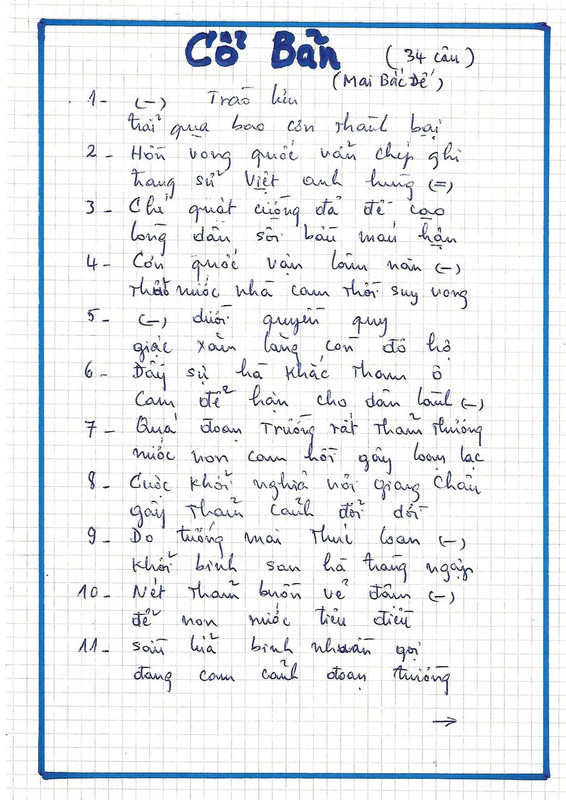 Cổ Bản (34 câu)
(Mai Bắc Đế)
1- (-) Trao
trải qua bao cơn thành bại
2- Hồn vong quốc vẫn chép ghi
trang sử Việt anh hùng (=)
3- Chí quật cường đã đề cao
lòng dân sôi bầu máu hận
4- Cơn quốc vận lầm nàn (-)
nước nhà cam thời suy vong
5- (-) dưới quyền quy
giặc xâm lăng còn đô hộ
6- Đầy sự hà khắc tham ô
Cam để hận cho dân lành (-)
7- Quá đoạn trường rất thảm thương
nước non cam hồi gây loạn lạc
8- Cuộc khởi nghĩa nơi giang Châu
gây thảm cảnh đổi dời
9- Do tướng mai thúc loan (-)
khởi binh san hà tràng ngập
10- Nét thảm buồn về đâm (-)
để non nước tiêu điều
11- sầu lửa binh gợi
đang cam cảnh đoạn trường
→